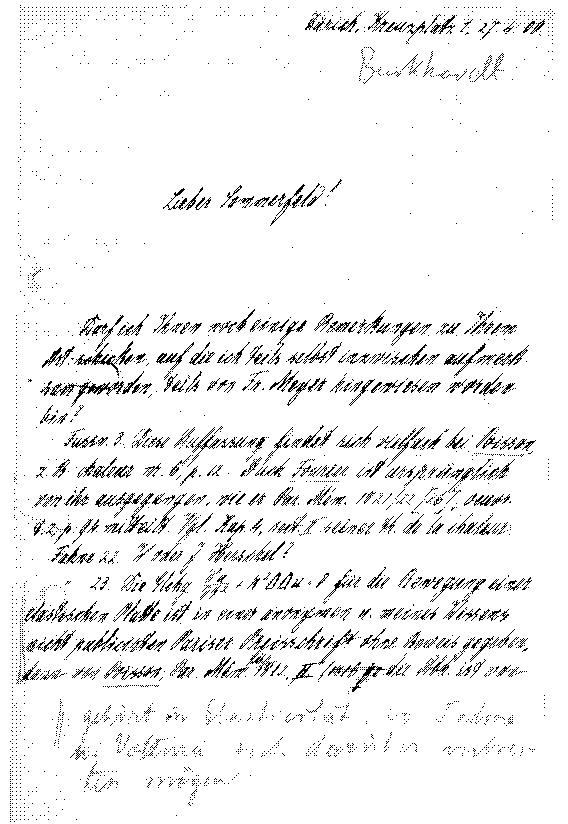 Zürich, Kreuzplatz 1. 27.4.00.
Burkhardt
Lieber Sommerfeld!
Darf ich Ihnen noch einige Bemerkungen zu Ihrem
Art. schicken, auf die ich teils selbst inzwischen aufmerk
sam geworden, teils von Fr. Meyer hingewiesen worden
bin?
Fussn. 3. Diese Auffassung findet sich vielfach bei Poisson,
z. B. chaleur nr. 6, p. Auch Fourier ist ursprünglich
von ihr ausgegangen, wie er Par. Mém. 1821/22
p. 94 mitteilt. Vgl. Kap. 4, sect. seiner th. de la chaleur.
Fahne 22. W oder J Herschel?
" 23. Die Glchg. für die Bewegung einer
elastischen Platte ist in einer anonymen u. meines Wissens
nicht publicierten Pariser Preisschrift ohne Beweis gegeben,
dann von Poisson, Par. Mém. 1812, II die Abh. ist von
gehört in Elasticität, wo Tedone
u. Voltera sich darüber verbrei
ten mögen